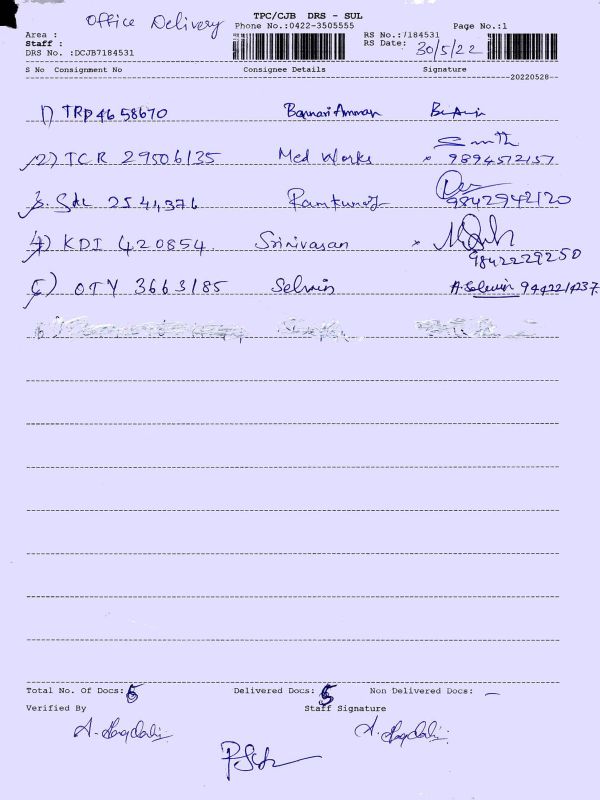 Office Delivery
TPC/CJB DRS - SUL
Phone No.:0422-3505555
Page No.:1
Area :
Staff :
DRS No. :DCJB7184531
RS No.:7184531
RS Date: 30/5/22
S No Consignment No Consignee Details Signature
20220528
1) TRP 46 58670 Bannari Amman
2) TCR 29506135 Med Works Smith
x 9894572157
3. Sdc 2541,376 Ramkumar
9842942120
4) KDI 420854 Srinivasan x
9842229250
5) OTY 3663185 Selwin A. Selwin 9442214237
Total No. Of Docs: 5 Delivered Docs: 5 Non Delivered Docs: -
Verified By Staff Signature